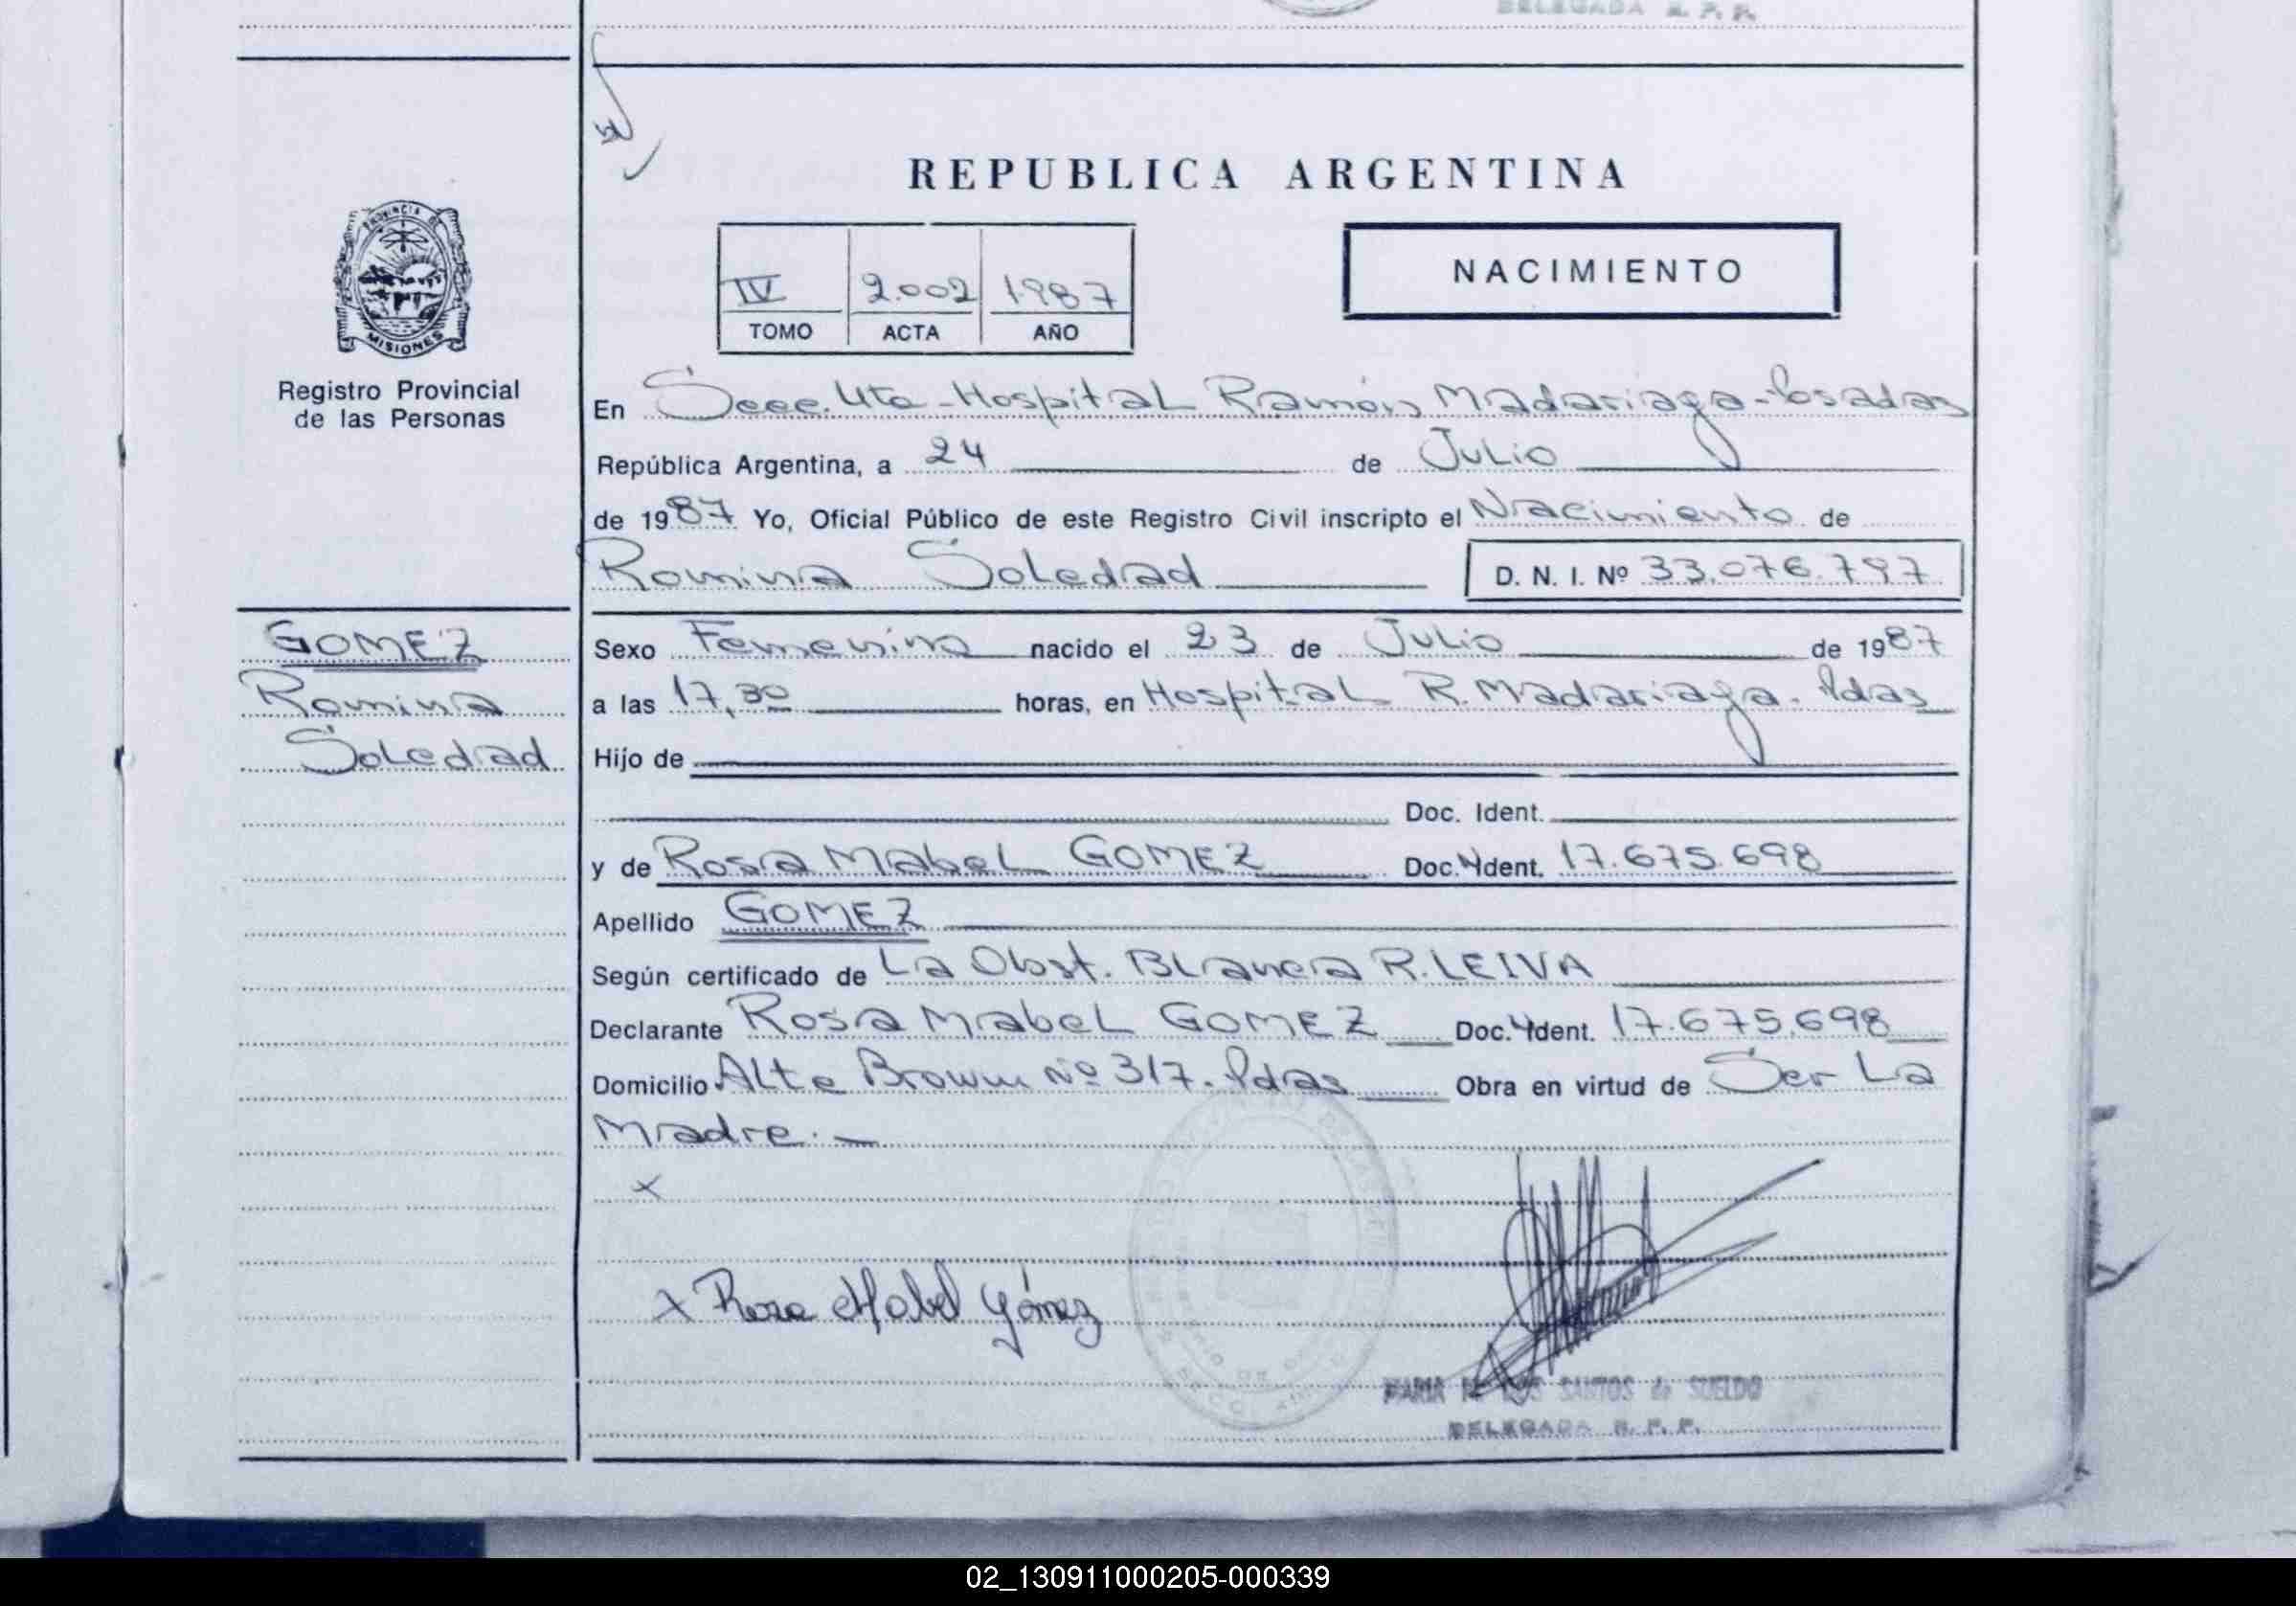 DELEGADA R. P. P.
REPUBLICA ARGENTINA
PROVINCIA DE
MISIONES
Registro Provincial
de las Personas
IV 2.002 1987
TOMO ACTA AÑO
NACIMIENTO
En Secc. 4ta - Hospital Ramón Madariaga - Posadas
República Argentina, a 24 de Julio
de 1987 Yo, Oficial Público de este Registro Civil inscripto el Nacimiento de
Romina Soledad D. N. I. Nº 33.076.797
GOMEZ
Romina
Soledad
Sexo Femenino nacido el 23 de Julio de 1987
a las 17,30 horas, en Hospital R. Madariaga. Pdas
Hijo de
Doc. Ident.
y de Rosa Mabel GOMEZ Doc. Ident. 17.675.698
Apellido GOMEZ
Según certificado de La Obst. Blanca R. LEIVA
Declarante Rosa Mabel GOMEZ Doc. Ident. 17.675.698
Domicilio Alte Brown Nº 317. Pdas Obra en virtud de Ser La
Madre.
x
x Rosa Mabel Gómez
MARIA SANTOS de SUELDO
DELEGADA R. P. P.
02_130911000205-000339